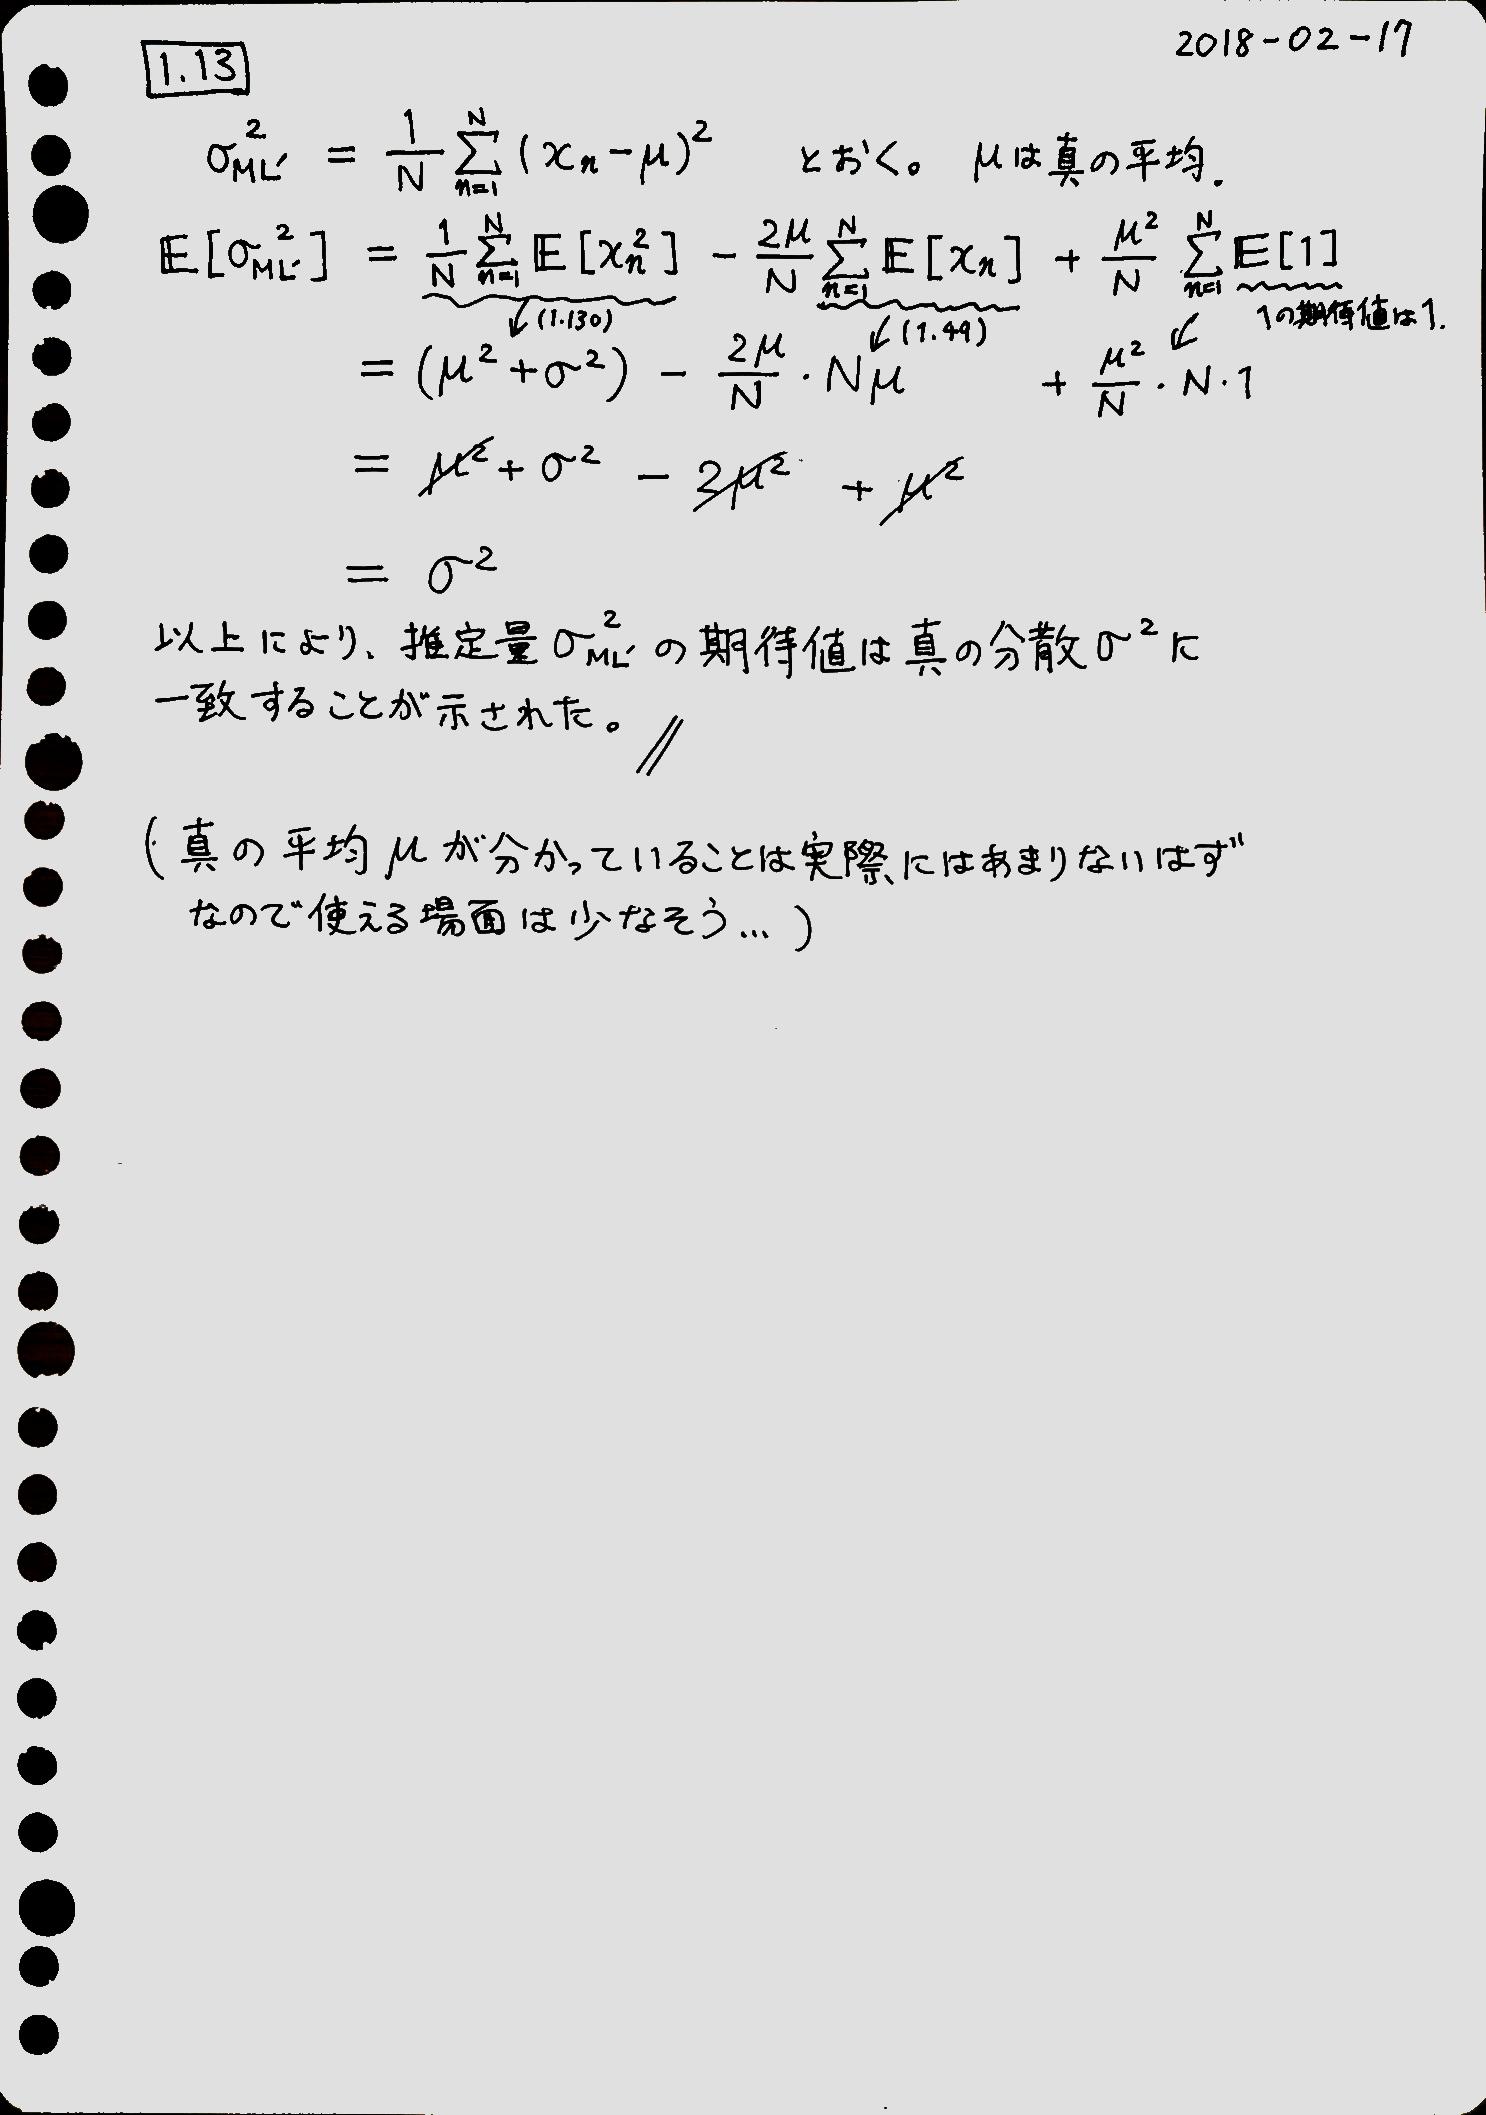 2018-02-17
1.13
σ²_ML' = 1/N Σ_{n=1}^{N} (x_n - μ)² とおく。 μは真の平均.
𝔼[σ²_ML'] = 1/N Σ_{n=1}^{N} 𝔼[x_n²] - 2μ/N Σ_{n=1}^{N} 𝔼[x_n] + μ²/N Σ_{n=1}^{N} 𝔼[1]
↙(1.130) ↙(1.49) ↙ 1の期待値は1.
= (μ² + σ²) - 2μ/N · Nμ + μ²/N · N · 1
= μ² + σ² - 2μ² + μ²
= σ²
以上により、推定量σ²_ML'の期待値は真の分散σ²に
一致することが示された。//
(真の平均μが分かっていることは実際にはあまりないはず
なので使える場面は少なそう...)